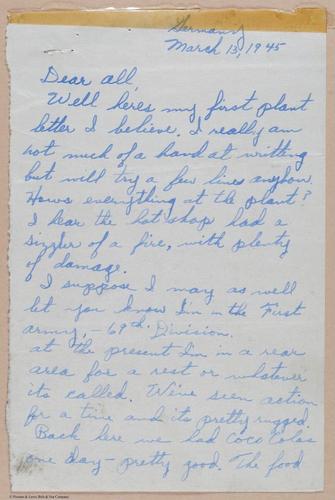 Germany
March 13, 1945
Dear all,
Well here's my first plant
letter I believe. I really am
not much of a hand at writting
but will try a few lines anyhow.
Hows everything at the plant?
I hear the hot shop had a
sizzler of a fire, with plenty
of damage.
I suppose I may as well
let you know I'm in the First
army, - 69th Division.
at the present I'm in a rear
area for a rest or whatever
its called. We've seen action
for a time and its pretty rugged.
Back here we had Coco Colas
one day - pretty good. The food